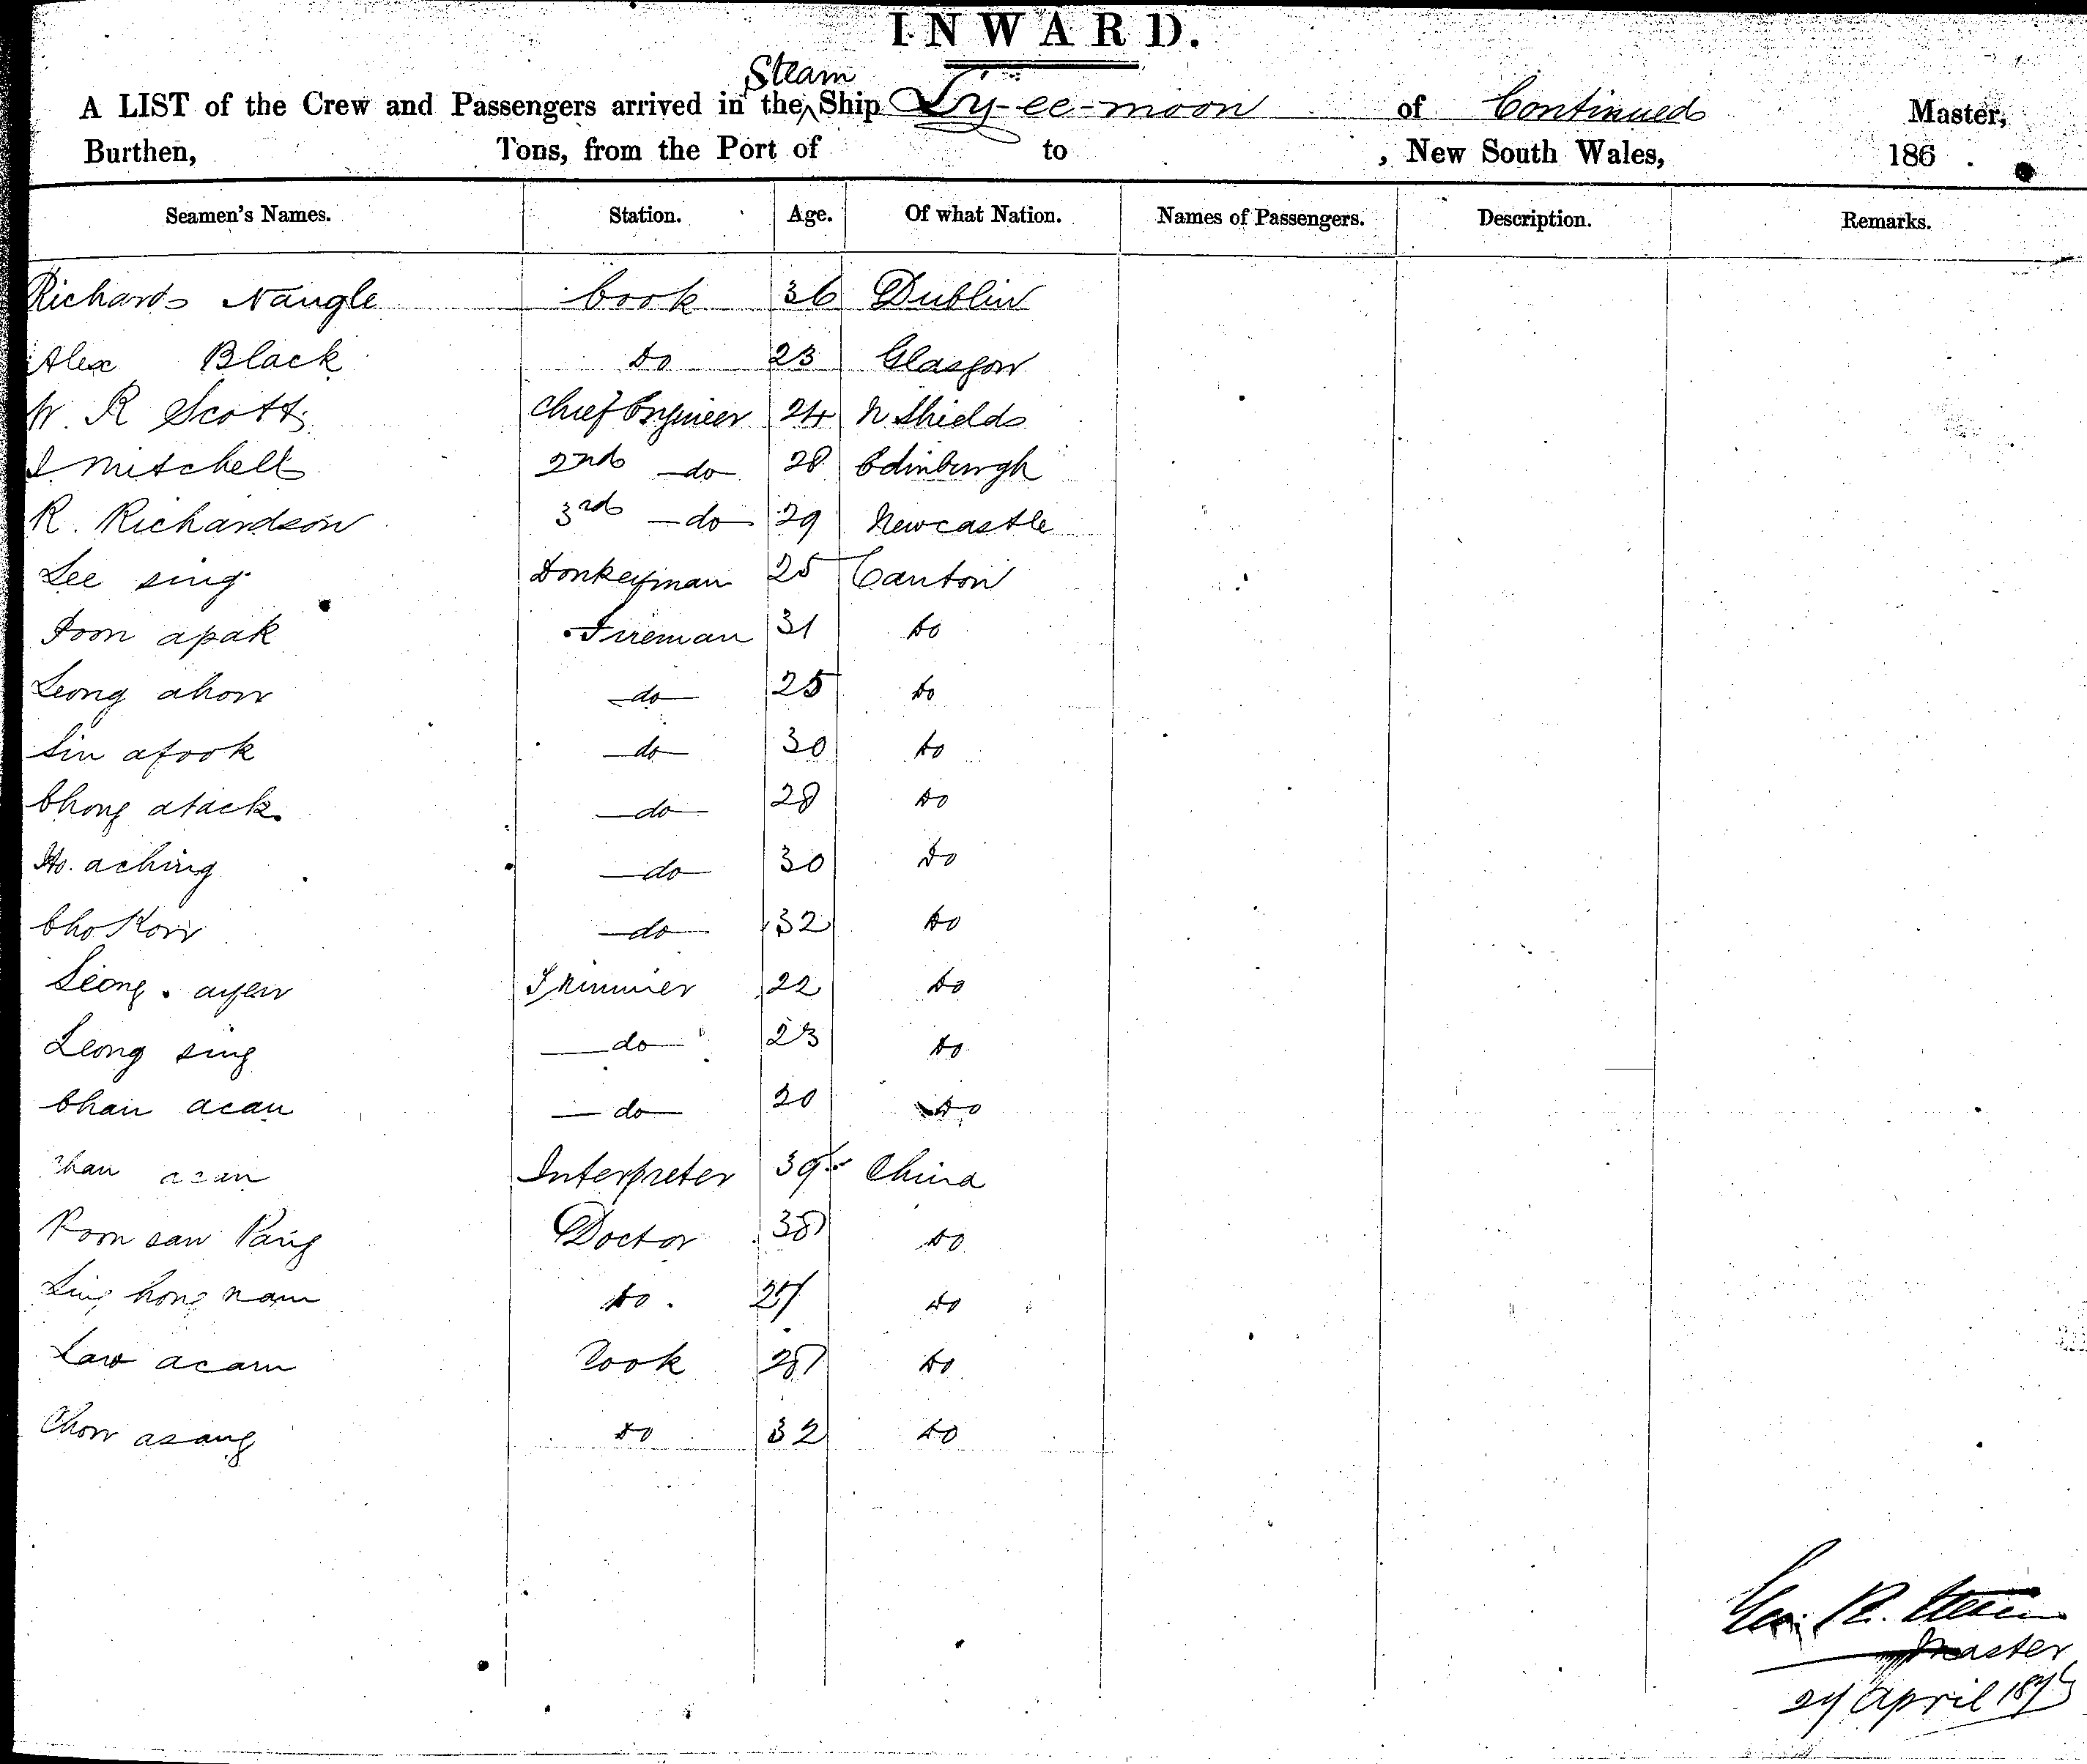 INWARD.
Steam
A LIST of the Crew and Passengers arrived in the ^ Ship Ly-ee-moon of Continued Master,
Burthen, Tons, from the Port of to , New South Wales, 186 .
Seamen's Names. Station. Age. Of what Nation. Names of Passengers. Description. Remarks.
Richard Nangle Cook 36 Dublin
Alex Black Do 23 Glasgow
W. R Scott Chief Engineer 24 N Shields
Mitchell 2nd do 28 Edinburgh
R. Richardson 3rd do 29 Newcastle
Lee sing Donkeyman 25 Canton
apak Fireman 31 Do
Leong ahow do 25 Do
Lin afook do 30 Do
Chong atack do 28 Do
Ho. aching do 30 Do
Cho Kow do 32 Do
Leong Trimmer 22 Do
Leong sing do 23 Do
Chan acan do 20 Do
Chan acan Interpreter 39 China
Doctor 38 Do
Do Do
Law acam Cook 28 Do
Chow asang Do 32 Do
R.
Master
April